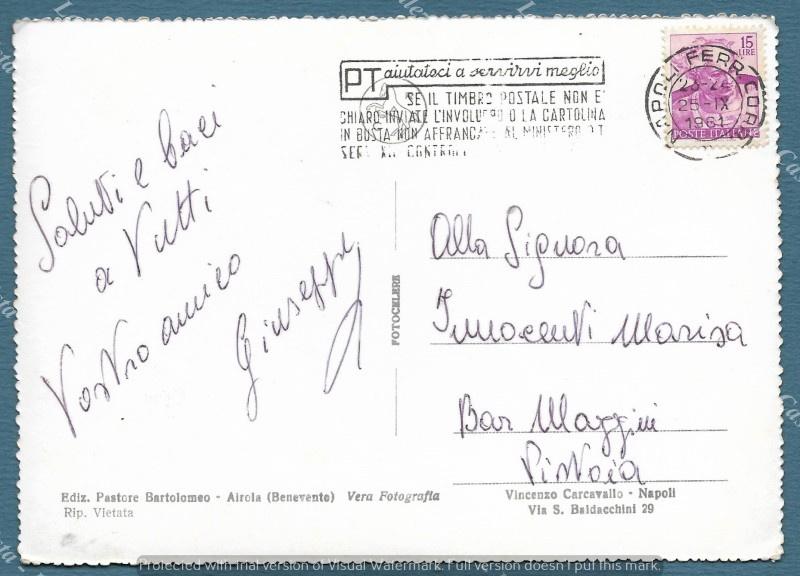 15
LIRE
POSTE ITALIANE
NAPOLI FERR. CORR.
23-24
25-IX
1961
PT aiutateci a servirvi meglio
SE IL TIMBRO POSTALE NON E'
CHIARO INVIATE L'INVOLUCRO O LA CARTOLINA
IN BUSTA NON AFFRANCATA AL MINISTERO P.T.
Saluti e baci
a Tutti
Vostro amico
Giuseppe
FOTOCELERE
Alla Signora
Innocenti Marisa
Bar Maggini
Pistoia
Ediz. Pastore Bartolomeo - Airola (Benevento) Vera Fotografia
Rip. Vietata
Vincenzo Carcavallo - Napoli
Via S. Baldacchini 29
Protected with trial version of Visual Watermark. Full version doesn't put this mark.